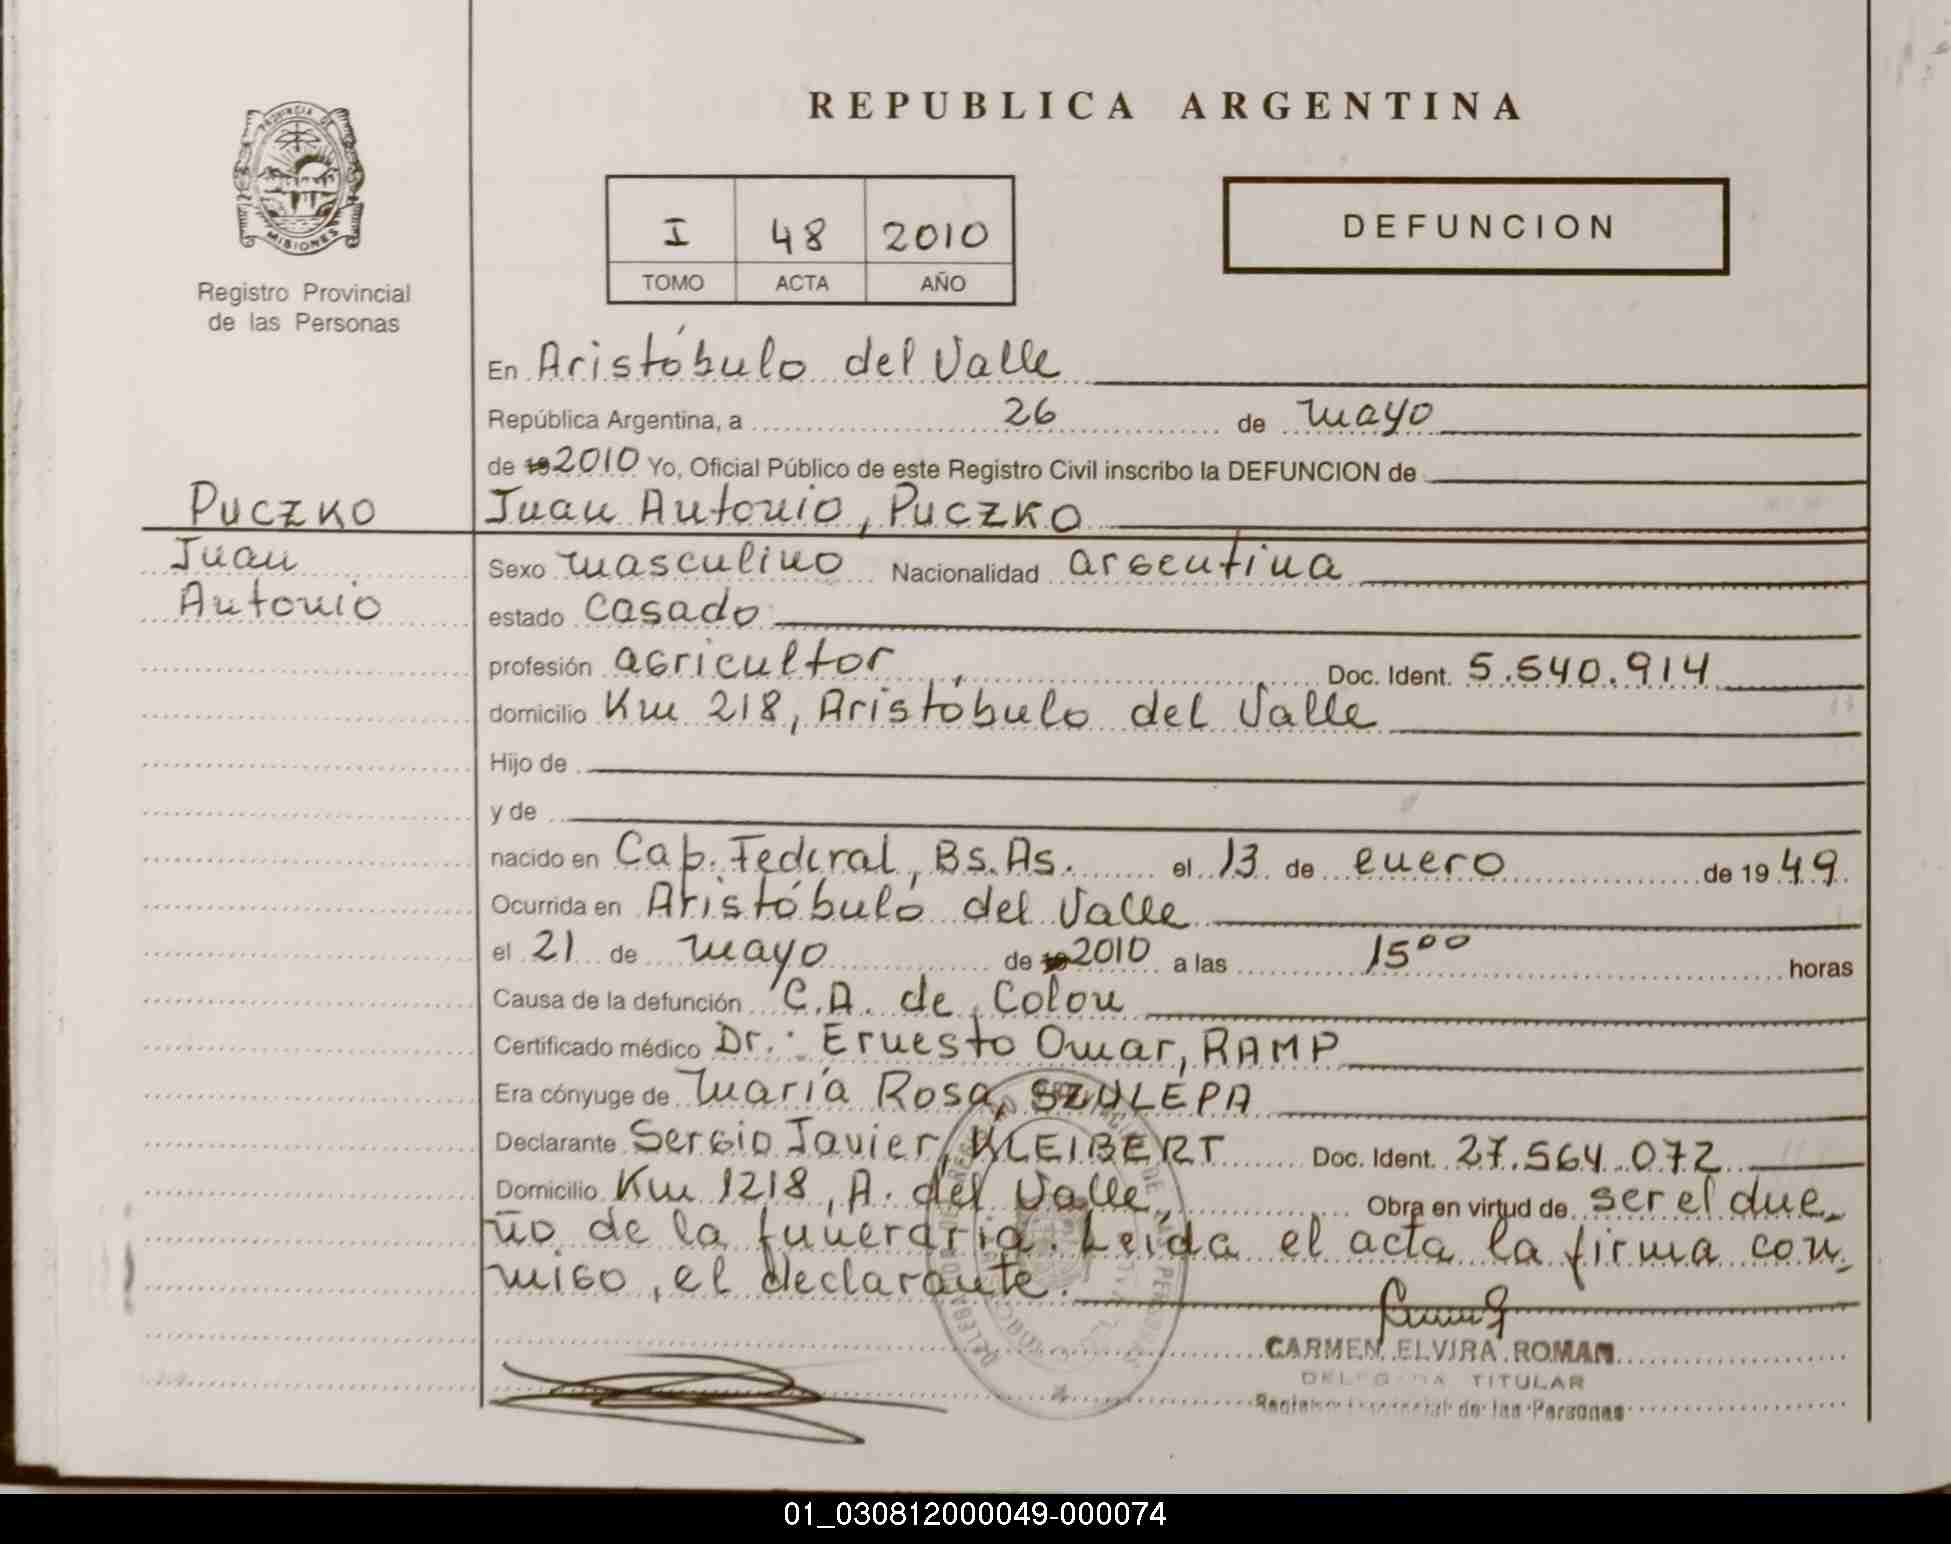 REPUBLICA ARGENTINA
PROVINCIA DE
MISIONES
Registro Provincial
de las Personas
I 48 2010
TOMO ACTA AÑO
DEFUNCION
En Aristóbulo del Valle
República Argentina, a 26 de mayo
de 19 2010 Yo, Oficial Público de este Registro Civil inscribo la DEFUNCION de
PUCZKO
Juan
Antonio
Juan Antonio, PUCZKO
Sexo masculino Nacionalidad argentina
estado casado
profesión agricultor, Doc. Ident. 5.540.914
domicilio Km 218, Aristóbulo del Valle
Hijo de
y de
nacido en Cap. Federal, Bs. As. el 13 de enero de 1949
Ocurrida en Aristóbulo del Valle
el 21 de mayo de 19 2010 a las 15⁰⁰ horas
Causa de la defunción C.A. de Colon
Certificado médico Dr.: Ernesto Omar, RAMP
Era cónyuge de María Rosa, SZULEPA
Declarante Sergio Javier, KLEIBERT Doc. Ident. 27.564.072
Domicilio Km 1218, A. del Valle, Obra en virtud de ser el due_
ño de la funeraria. Leida el acta la firma con_
migo, el declarante.
CARMEN ELVIRA ROMAN
DELEGADA TITULAR
Registro Provincial de las Personas
01_030812000049-000074